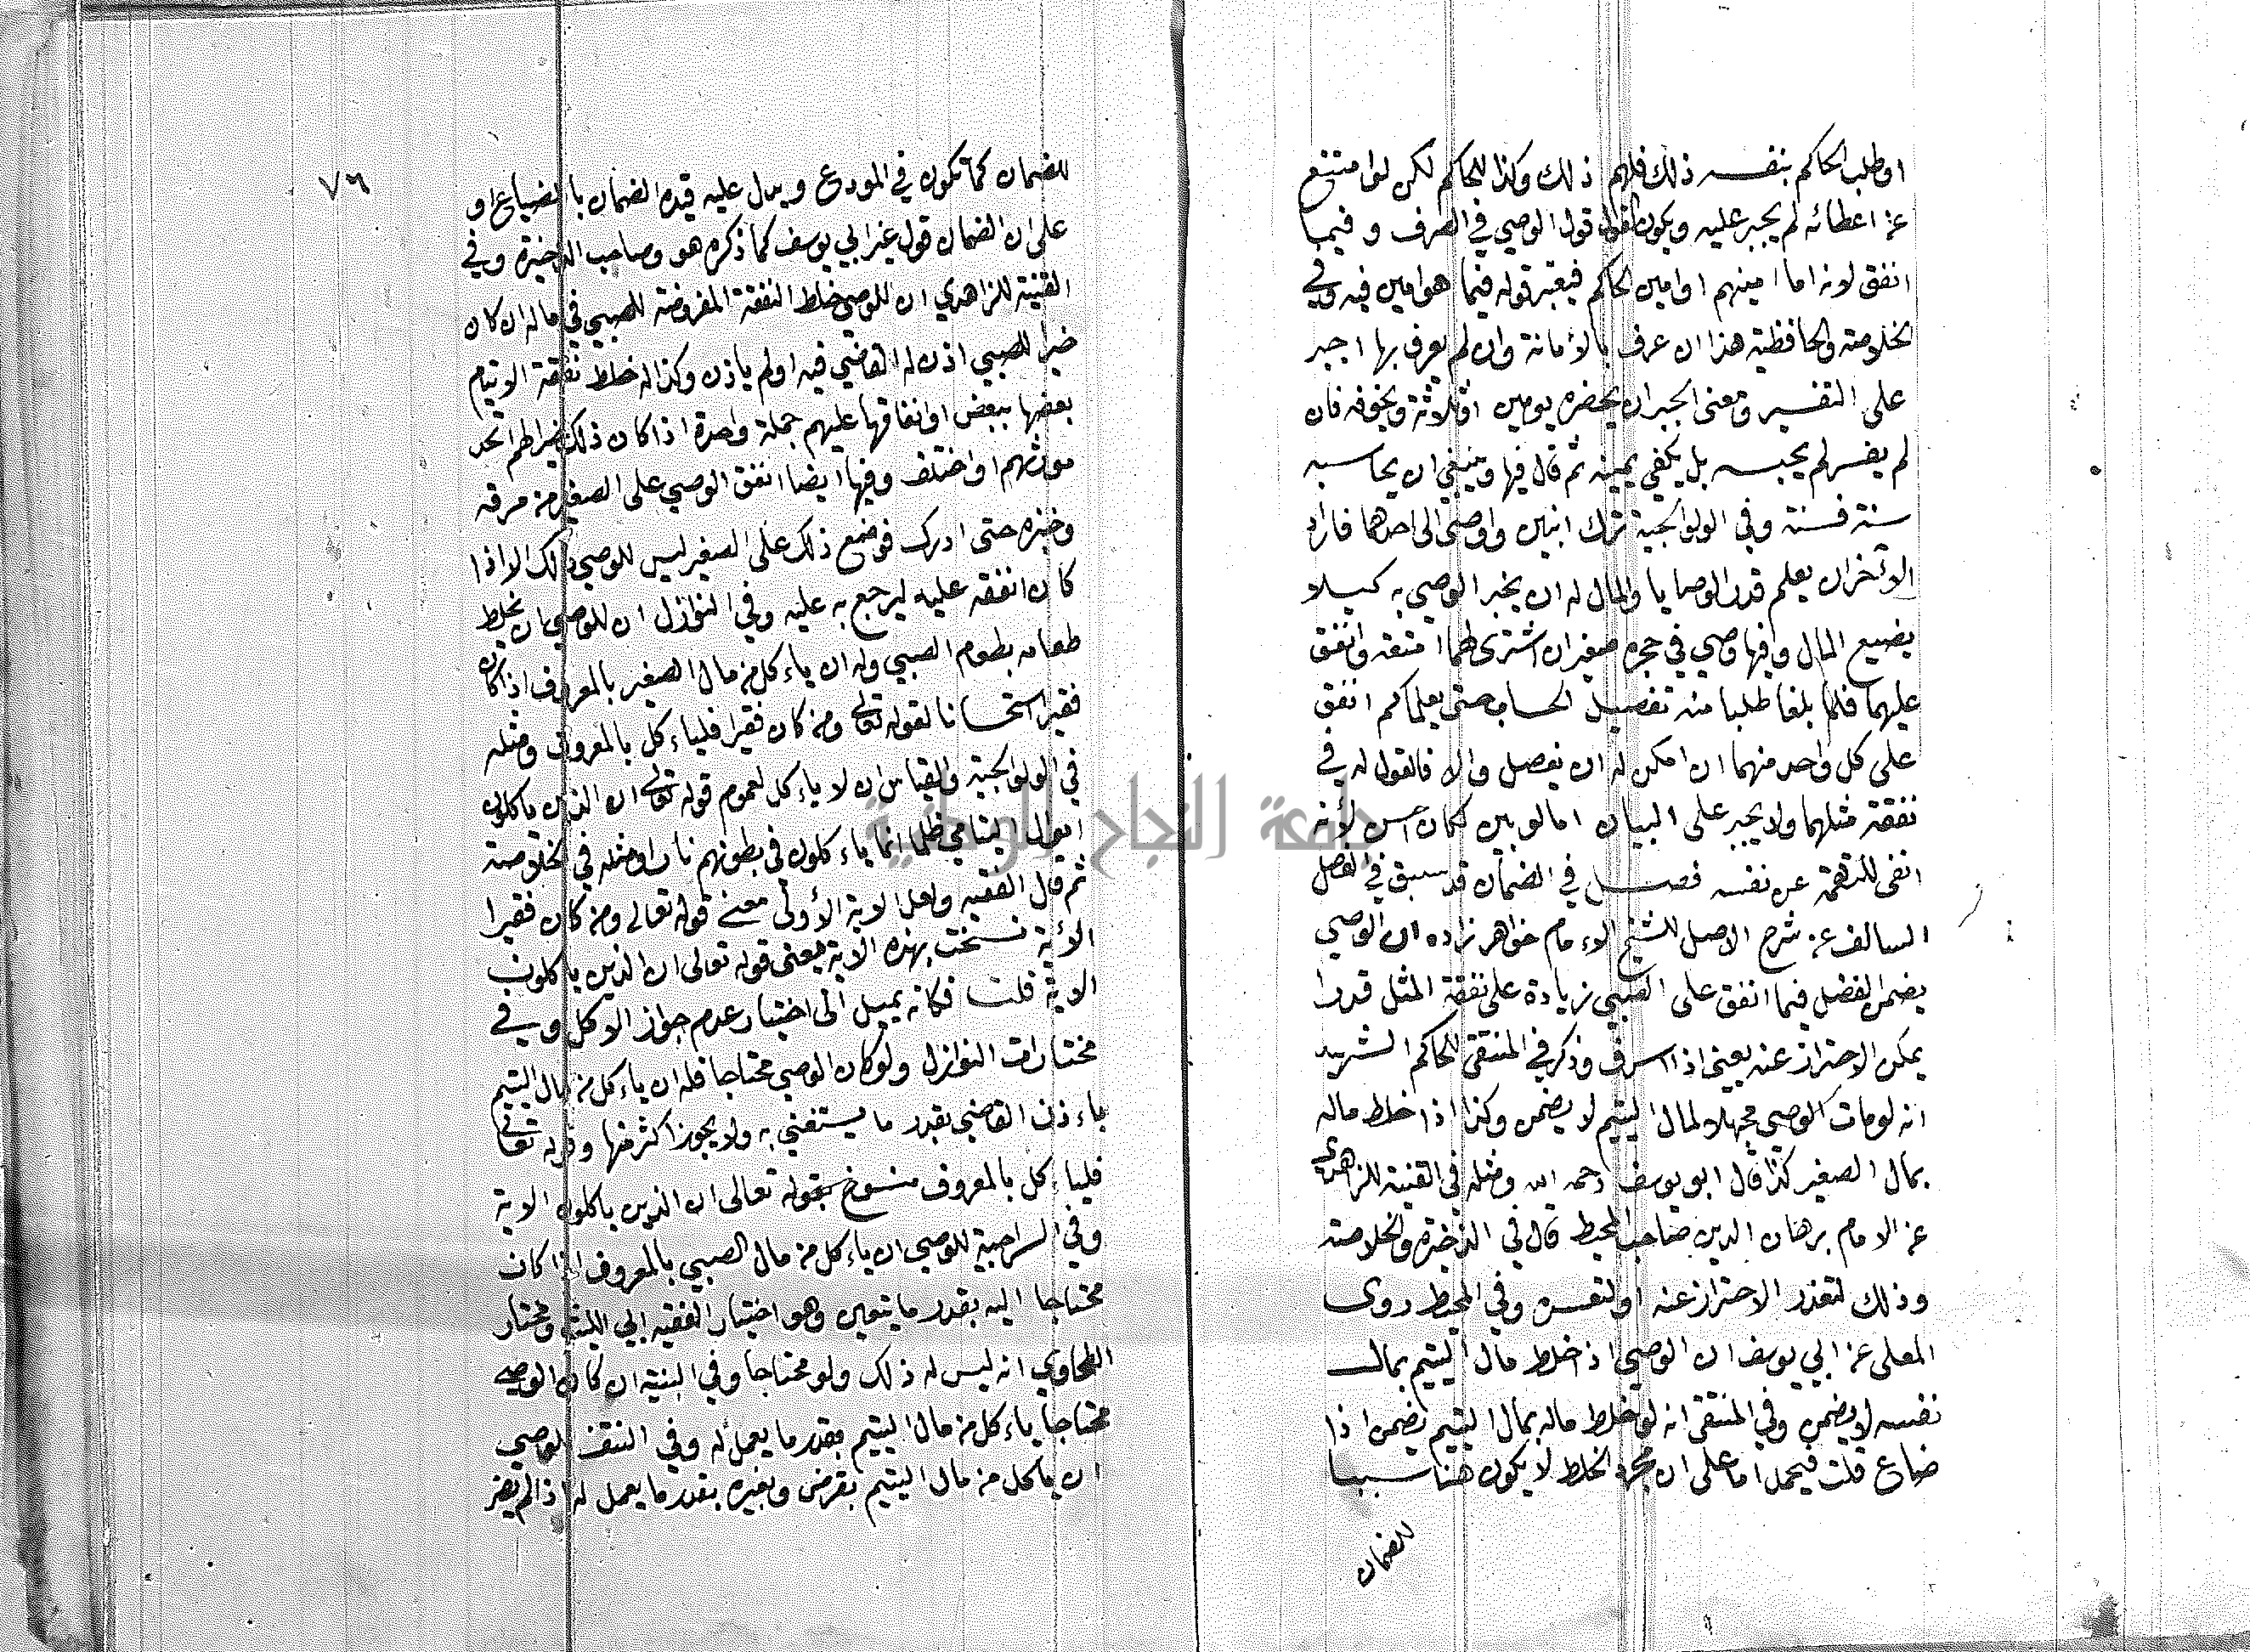 او طلب الحاكم بنفسه ذلك فلهم ذلك وكذا للحاكم لكن لو امتنع
عن اعطائه لم يجبر عليه ويكون القول قول الوصي في الصرف و فيما
انفق لانه اما امينهم او امين الحاكم فيعتبر قوله فيما هو امين فيه وفي
الخلاصة والحافظية هذا ان عرف بالأمانة وان لم يعرف بها اجبر
على التفسير ومعنى الجبر ان يحضره يومين او ثلاثة ويخوفه فان
لم يفسر لم يحبسه بل يكفي يمينه ثم قال فيها وينبغي ان يحاسبه
سنة فسنة وفي الولوالجية ترك ابنين واوصى الى احدهما فاراد
الأخر ان يعلم قدر الوصايا والمال له ان يخبر الوصي به كيلا
يضيع المال وفيها وصي في حجره صغيران اشترى لهما امتعة وانفق
عليهما فلما بلغا طلبا منه تفصيل الحساب حتى يعلما كم انفق
على كل واحد منهما ان امكن له ان يفصل والا فالقول له في
نفقة مثلهما ولا يجبر على البيان اما لو بين لكان احسن لأنه
انفى للتهمة عن نفسه فصل في الضمان قد سبق في الفصل
السالف عن شرح الاصل للشيخ الاءمام خواهر زاده ان الوصي
يضمن الفضل فيما انفق على الصبي زيادة على نفقة المثل قدرا
يمكن الاحتراز عنه يعني اذا اسرف وذكر في المنتقى للحاكم الشهيد
انه لو مات الوصي مجهلا لمال اليتيم لا يضمن وكذا اذا خلط ماله
بمال الصغير كذا قال ابو يوسف رحمه الله ومثله في القنية للزاهدي
عن الامام برهان الدين صاحب المحيط قال في الذخيرة والخلاصة
وذلك لتعذر الاحتراز عنه او لتعسره وفي المحيط روى
المعلى عن ابي يوسف ان الوصي اذا خلط مال اليتيم بمال
نفسه لا يضمن وفي المنتقى انه لو خلط ماله بمال اليتيم يضمن اذا
ضاع قلت فيحمل اما على ان مجرد الخلط لا يكون هنا سببا
للضمان
٧٦
للضمان كما تكون في المودع ويدل عليه قيده الضمان بالضياع او
على ان الضمان قول غير ابي يوسف كما ذكره هو وصاحب الذخيرة وفي
القنية للزاهدي ان للوصي خلط النفقة المفروضة للصبي في ماله ان كان
خيرا للصبي اذن له القاضي فيه او لم ياذن وكذا له خلط نفقة الايتام
بعضها ببعض او انفاقها عليهم جملة واحدة اذا كان ذلك خيرا لهم اتحد
مورثهم او اختلف وفيها ايضا انفق الوصي على الصغير من مرقه
وخبزه حتى ادرك فوضع ذلك على الصغير ليس للوصي ذلك الا اذا
كان انفقه عليه ليرجع به عليه وفي النوازل ان للوصي ان يخلط
طعامه بطعام الصبي وله ان ياءكل من مال الصغير بالمعروف اذا كان
فقيرا استحسانا لقوله تعالى ومن كان فقيرا فلياءكل بالمعروف ومثله
في الولوالجية والقياس ان لا ياءكل لعموم قوله تعالى ان الذين ياكلون
اموال اليتامى ظلما انما ياءكلون في بطونهم نارا ومثله في الخلاصة
ثم قال الفقيه ولعل الاية الأولى معنى قوله تعالى ومن كان فقيرا
الأية نسخت بهذه الاية يعنى قوله تعالى ان الذين ياكلون
الاية قلت فكانه يميل الى اختيار عدم جواز الاكل وفي
مختارات النوازل ولو كان الوصي محتاجا فله ان ياءكل من مال اليتيم
باءذن القاضي بقدر ما يستغني به ولا يجوز اكثر منها وقوله تعالى
فلياءكل بالمعروف منسوخ بقوله تعالى ان الذين ياكلون الاية
وفي السراجية للوصي ان ياءكل من مال الصبي بالمعروف اذا كان
محتاجا اليه بقدر ما يتعين وهو اختيار الفقيه ابي الليث ومختار
الطحاوي انه ليس له ذلك ولو محتاجا وفي المنية ان كان الوصي
محتاجا ياءكل من مال اليتيم بقدر ما يعمل له وفي النتف للوصي
ان ياكل من مال اليتيم بقرض وبغيره بقدر ما يعمل له اذا لم يضر
جامعة النجاح الوطنية